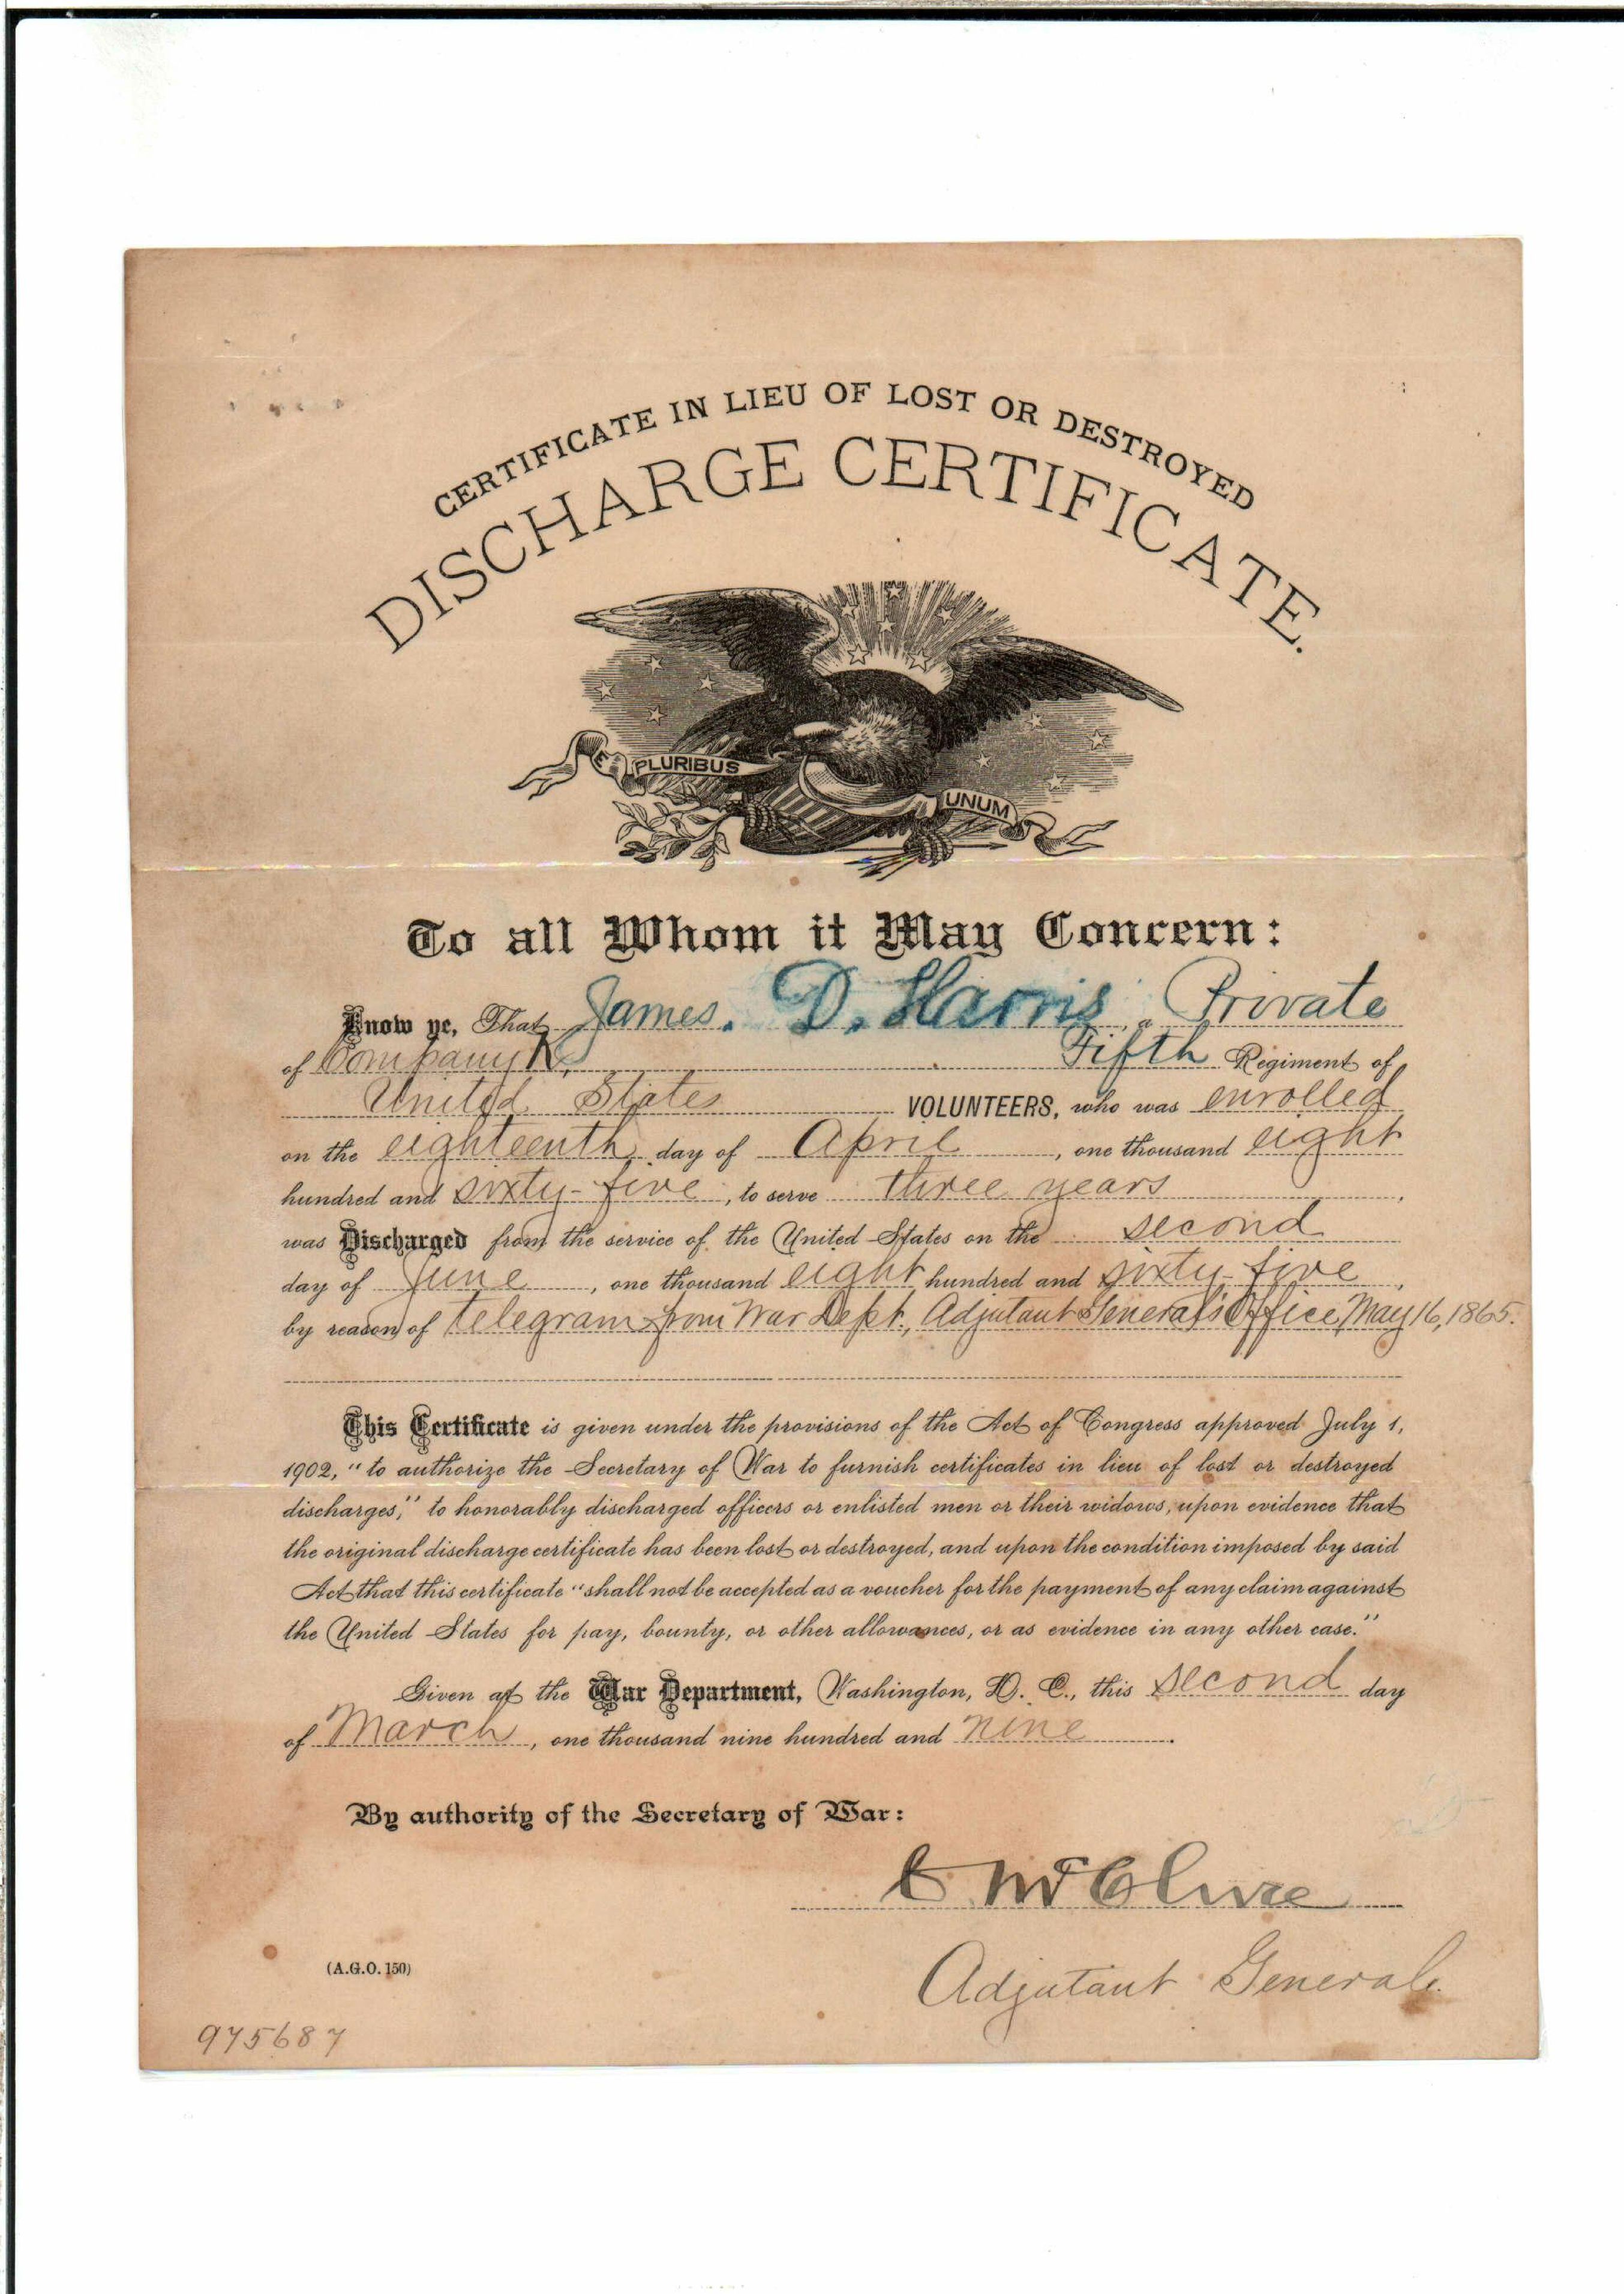 CERTIFICATE IN LIEU OF LOST OR DESTROYED
DISCHARGE CERTIFICATE.
E PLURIBUS UNUM
To all Whom it May Concern:
Know ye, That James. D. Harris, a Private
of Company K, Fifth Regiment of
United States VOLUNTEERS, who was enrolled
on the eighteenth day of April, one thousand eight
hundred and sixty-five, to serve three years,
was Discharged from the service of the United States on the second
day of June, one thousand eight hundred and sixty-five,
by reason of telegram from War Dept., Adjutant General's Office, May 16, 1865.
This Certificate is given under the provisions of the Act of Congress approved July 1,
1902, "to authorize the Secretary of War to furnish certificates in lieu of lost or destroyed
discharges," to honorably discharged officers or enlisted men or their widows, upon evidence that
the original discharge certificate has been lost or destroyed, and upon the condition imposed by said
Act that this certificate "shall not be accepted as a voucher for the payment of any claim against
the United States for pay, bounty, or other allowances, or as evidence in any other case."
Given at the War Department, Washington, D. C., this second day
of March, one thousand nine hundred and nine.
By authority of the Secretary of War:
McClure
Adjutant General.
(A.G.O. 150)
975687